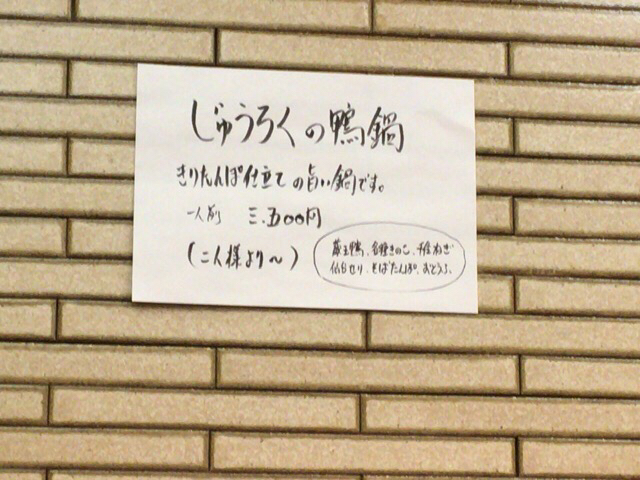 じゅうろくの鴨鍋
きりたんぽ仕立ての旨い鍋です。
一人前 三.五〇〇円
(二人様より〜)
蔵王鴨、各種きのこ、千住ねぎ
仙台せり、そばたんぽ、おとうふ、